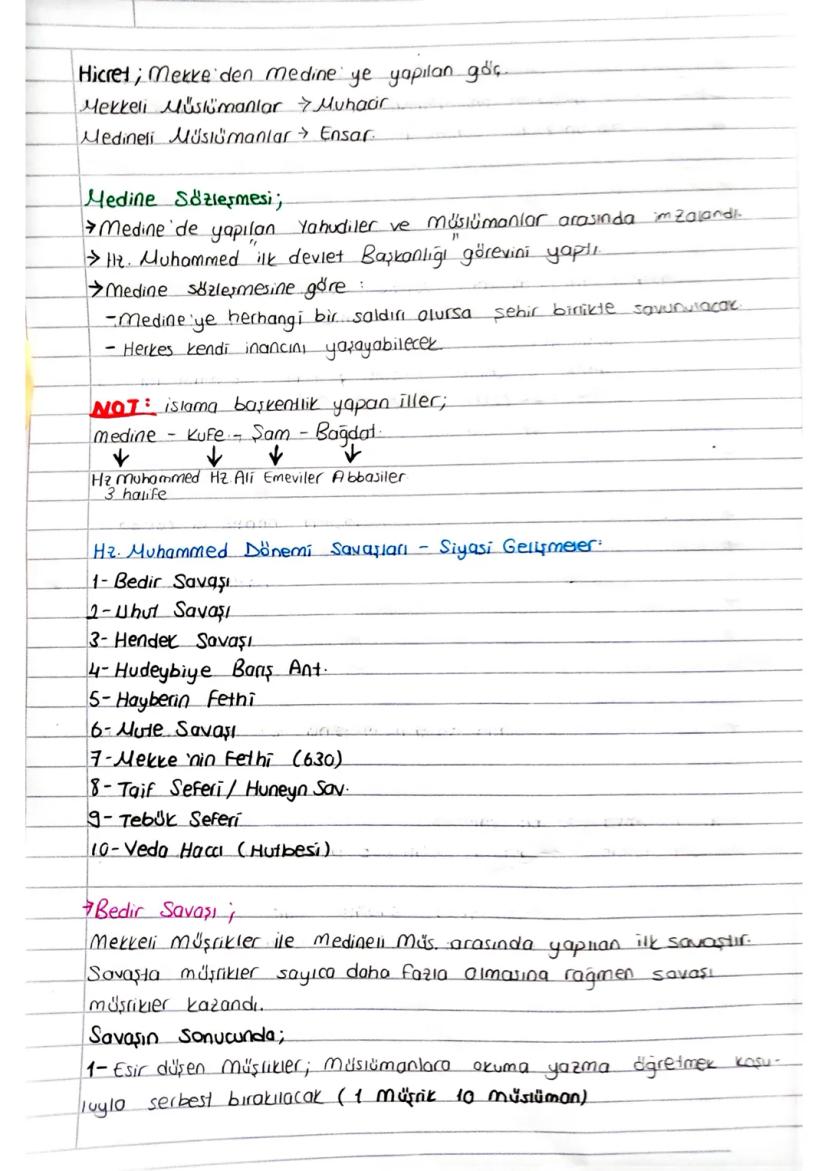 Hicret; Mekke'den medine'ye yapılan göç.
Mekkeli Müslümanlar → Muhacir
Medineli Müslümanlar → Ensar.
Medine Sözleşmesi;
→ Medine'de yapılan Yahudiler ve müslümanlar arasında imzalandı.
→ Hz. Muhammed "ilk devlet Başkanlığı" görevini yaptı
→ Medine sözleşmesine göre :
- Medine'ye herhangi bir saldırı olursa şehir birlikte savunulacak
- Herkes kendi inancını yaşayabilecek
NOT: islama başkentlik yapan iller;
medine - Kufe - Şam - Bağdat.
↓ ↓ ↓ ↓
Hz Muhammed Hz Ali Emeviler Abbasiler
3 halife
Hz. Muhammed Dönemi Savaşları - Siyasi Gelişmeler.
1- Bedir Savaşı
2- Uhut Savaşı
3- Hendek Savaşı
4- Hudeybiye Barış Ant.
5- Hayberin Fethi
6- Mute Savaşı
7- Mekke'nin Fethi (630)
8- Taif Seferi / Huneyn Sav.
9- Tebük Seferi
10- Veda Haccı (Hutbesi)
→ Bedir Savaşı ;
Mekkeli müşrikler ile medineli müs. arasında yapılan ilk savaştır.
Savaşta müşrikler sayıca daha fazla olmasına rağmen savaşı
müşrikler kazandı.
Savaşın sonucunda;
1- Esir düşen müşrikler; müslümanlara okuma yazma öğretmek koşu-
luyla serbest bırakılacak (1 müşrik 10 müslüman)